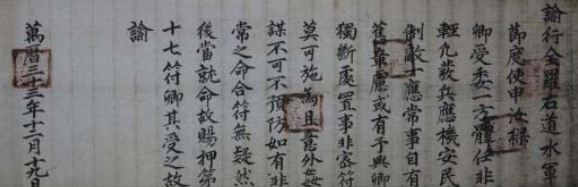 諭行全羅右道水軍
節度使申汝樑
卿受委一方體任非
輕凡發兵應機安民
制敵一應常事自有
舊章慮或有予與卿
獨斷處置事非密符
莫可施為且意外姦
謀不可不預防如有非
常之命合符無疑然
後當就命故賜押第
十七符卿其受之故
諭
萬曆三十三年十二月十九日